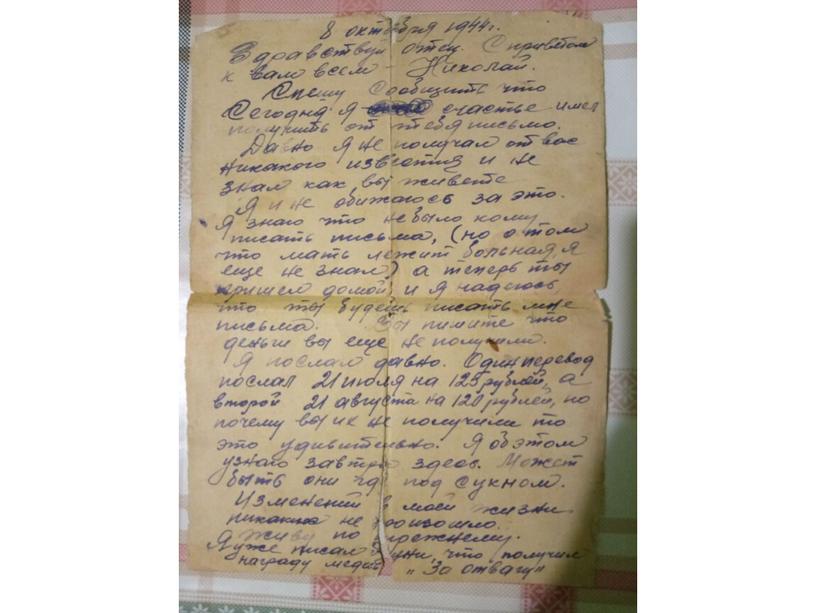 8 октября 1944г.
Здравствуй отец. С приветом
к вам всем Николай.
Спешу сообщить что
Сегодня я счастье имел
получить от тебя письмо.
Давно я не получал от вас
никакого известия и не
знал как вы живете
Я и не обижаюсь за это.
Я знаю что не было кому
писать письма, (но о том
что мать лежит больная, я
еще не знал) а теперь ты
пришел домой и я надеюсь
что ты будешь писать мне
письма. Вы пишите что
деньги вы еще не получили.
Я послал давно. Один перевод
послал 21 июля на 125 рублей, а
второй 21 августа на 120 рублей, но
почему вы их не получили то
это удивительно. Я об этом
узнаю завтра здесь. Может
быть они где под сукном.
Изменений в моей жизни
никаких не произошло.
Я живу по прежнему.
Я уже писал что получил
награду медаль "За отвагу"